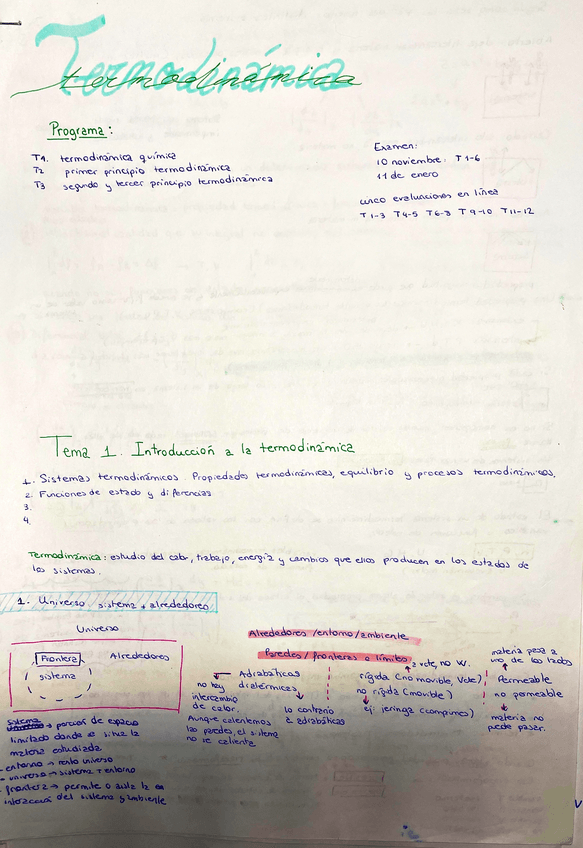 Termodinámica
termodinámica
Programa:
T1. termodinámica química
T2 primer principio termodinámica
T3 segundo y tercer principio termodinámica
Examen:
10 noviembre: T 1-6
11 de enero
cinco evaluaciones en línea
T 1-3 T4-5 T6-8 T9-10 T11-12
Tema 1. Introducción a la termodinámica
1. Sistemas termodinámicos. Propiedades termodinámicas, equilibrio y procesos termodinámicos.
2. Funciones de estado y diferencias
3.
4.
Termodinámica: estudio del calor, trabajo, energía y cambios que ellos producen en los estados de
los sistemas.
1. Universo sistema + alrededores
Universo
Frontera
Alrededores
sistema
sistema → porción de espacio
limitado donde se sitúa la
materia estudiada
- entorno → resto universo
- universo → sistema + entorno
- frontera → permite o aísla la
interacción del sistema y ambiente
Alrededores /entorno/ambiente
Paredes / fronteras o límites
Adiabáticas
diatérmicas
no hay
intercambio
de calor.
Aunque calentemos
las paredes, el sistema
no se calienta
lo contrario
a adiabáticas
cte, no W.
rígida (no movible, Vcte)
no rígida (movible)
ej: jeringa (compumes)
materia pasa a
uno de los lados
Permeable
no permeable
materia no
puede pasar.